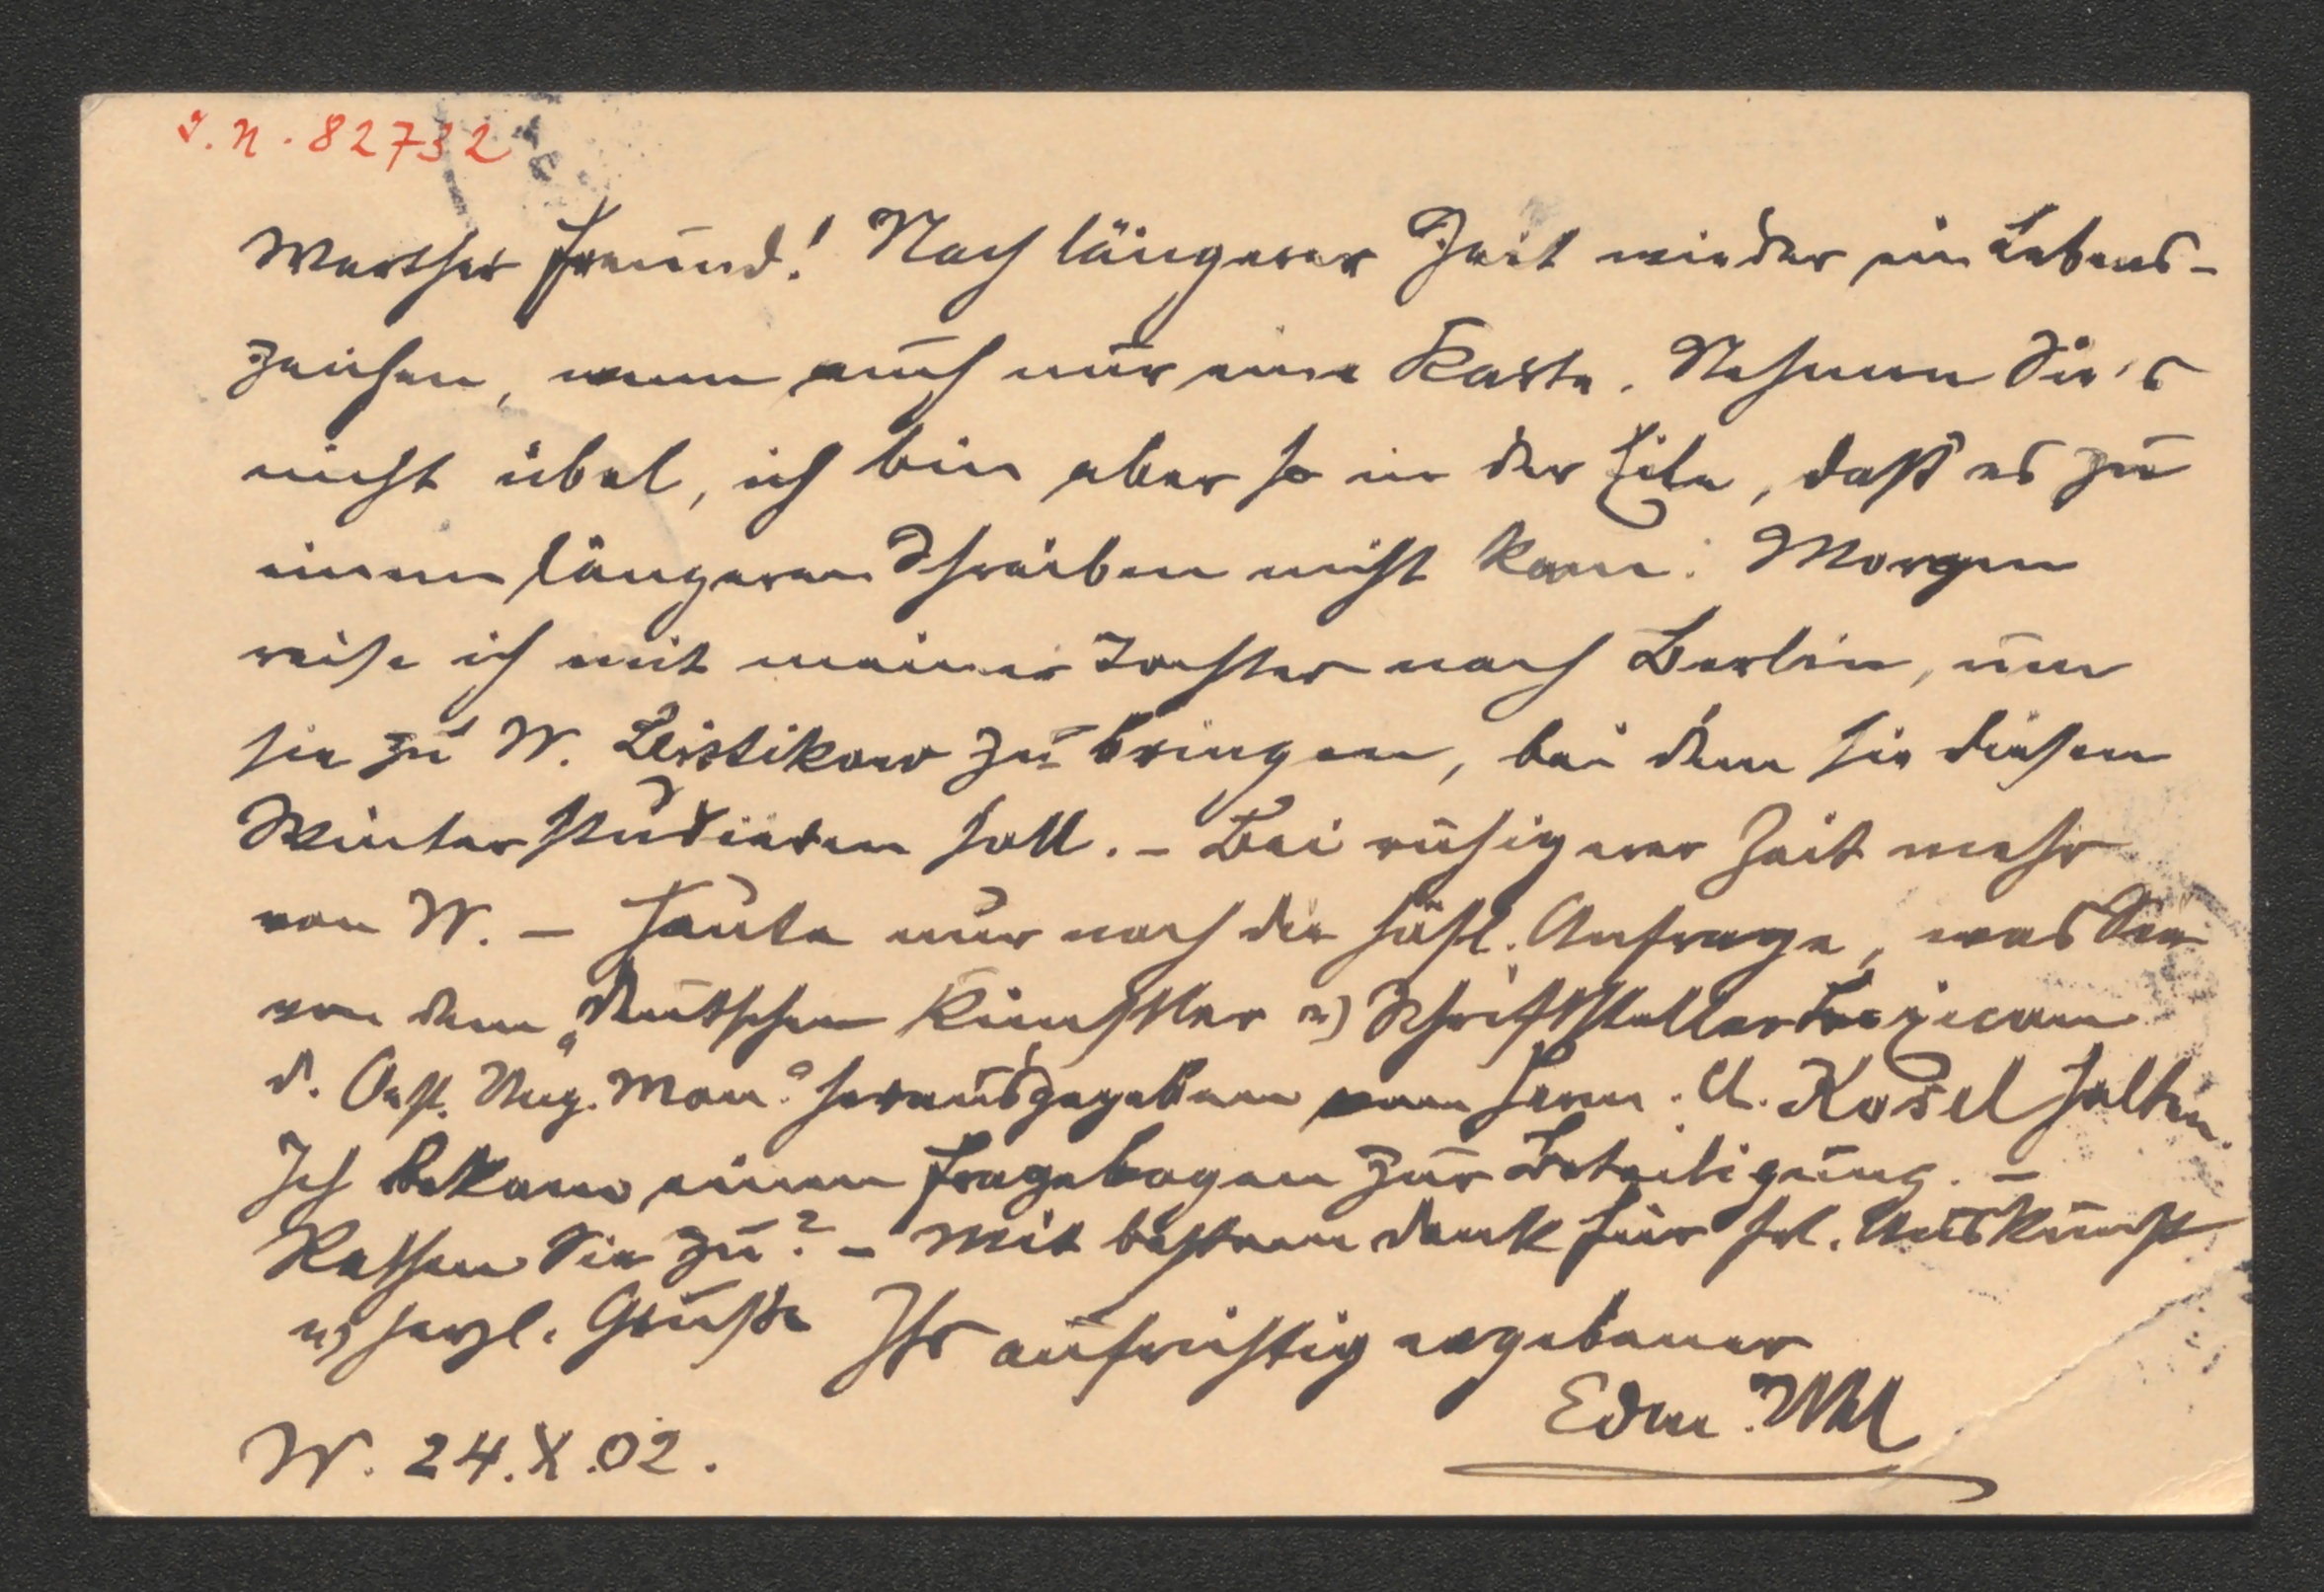 I. N. 82732
Werther Freund! Nach längerer Zeit wieder ein Lebens-
zeichen, wenn auch nur eine Karte. Nehmen Sie's
nicht übel, ich bin aber so in der Eile, daß es zu
einem längeren Schreiben nicht kam. Morgen
reise ich mit meiner Tochter nach Berlin, um
sie zu W. Leistikow zu bringen, bei dem sie diesen
Winter studieren soll. – Bei ruhigerer Zeit mehr
von W. – Heute nur noch die höfl. Anfrage, was Sie
von dem „Deutschen Künstler u) Schriftsteller Lexicon
d. Oest. Ung. Mon." herausgegeben vom Herrn. A. Kosel halten.
Ich bekam einen Fragebogen zur Beteiligung. –
Rathen Sie zu? – Mit bestem Dank für frl. Auskunft
u) herzl. Grüße Ihr aufrichtig ergebener
Edm.
W. 24.X.02.